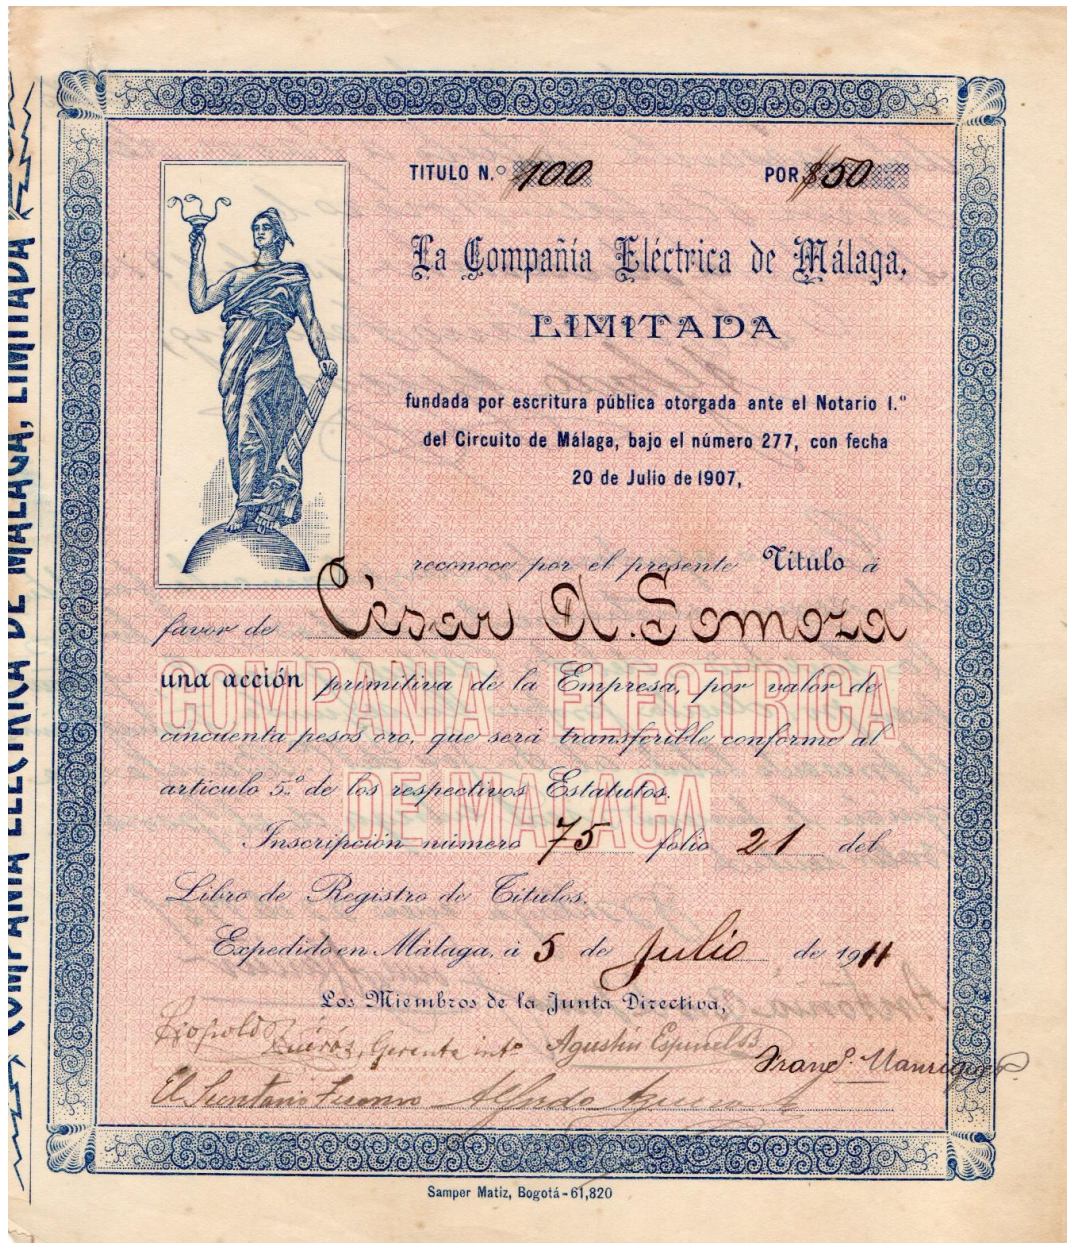 COMPAÑIA ELECTRICA DE MALAGA, LIMITADA
TITULO N.º 100 POR $50
La Compañía Eléctrica de Málaga,
LIMITADA
fundada por escritura pública otorgada ante el Notario 1.º
del Circuito de Málaga, bajo el número 277, con fecha
20 de Julio de 1907,
reconoce por el presente Título á
favor de César A. Gomoza
una acción primitiva de la Empresa, por valor de
cincuenta pesos oro, que será transferible conforme al
artículo 5.º de los respectivos Estatutos.
COMPAÑIA ELECTRICA
DE MALAGA
Inscripción número 75 folio 21 del
Libro de Registro de Títulos.
Expedido en Málaga, á 5 de Julio de 1911
Los Miembros de la Junta Directiva,
Leopoldo Quirós, Gerente int.º Agustín Espinel B
Franc.º Manrique P.
El Secretario Tesorero Alfredo
Samper Matiz, Bogotá-61,820